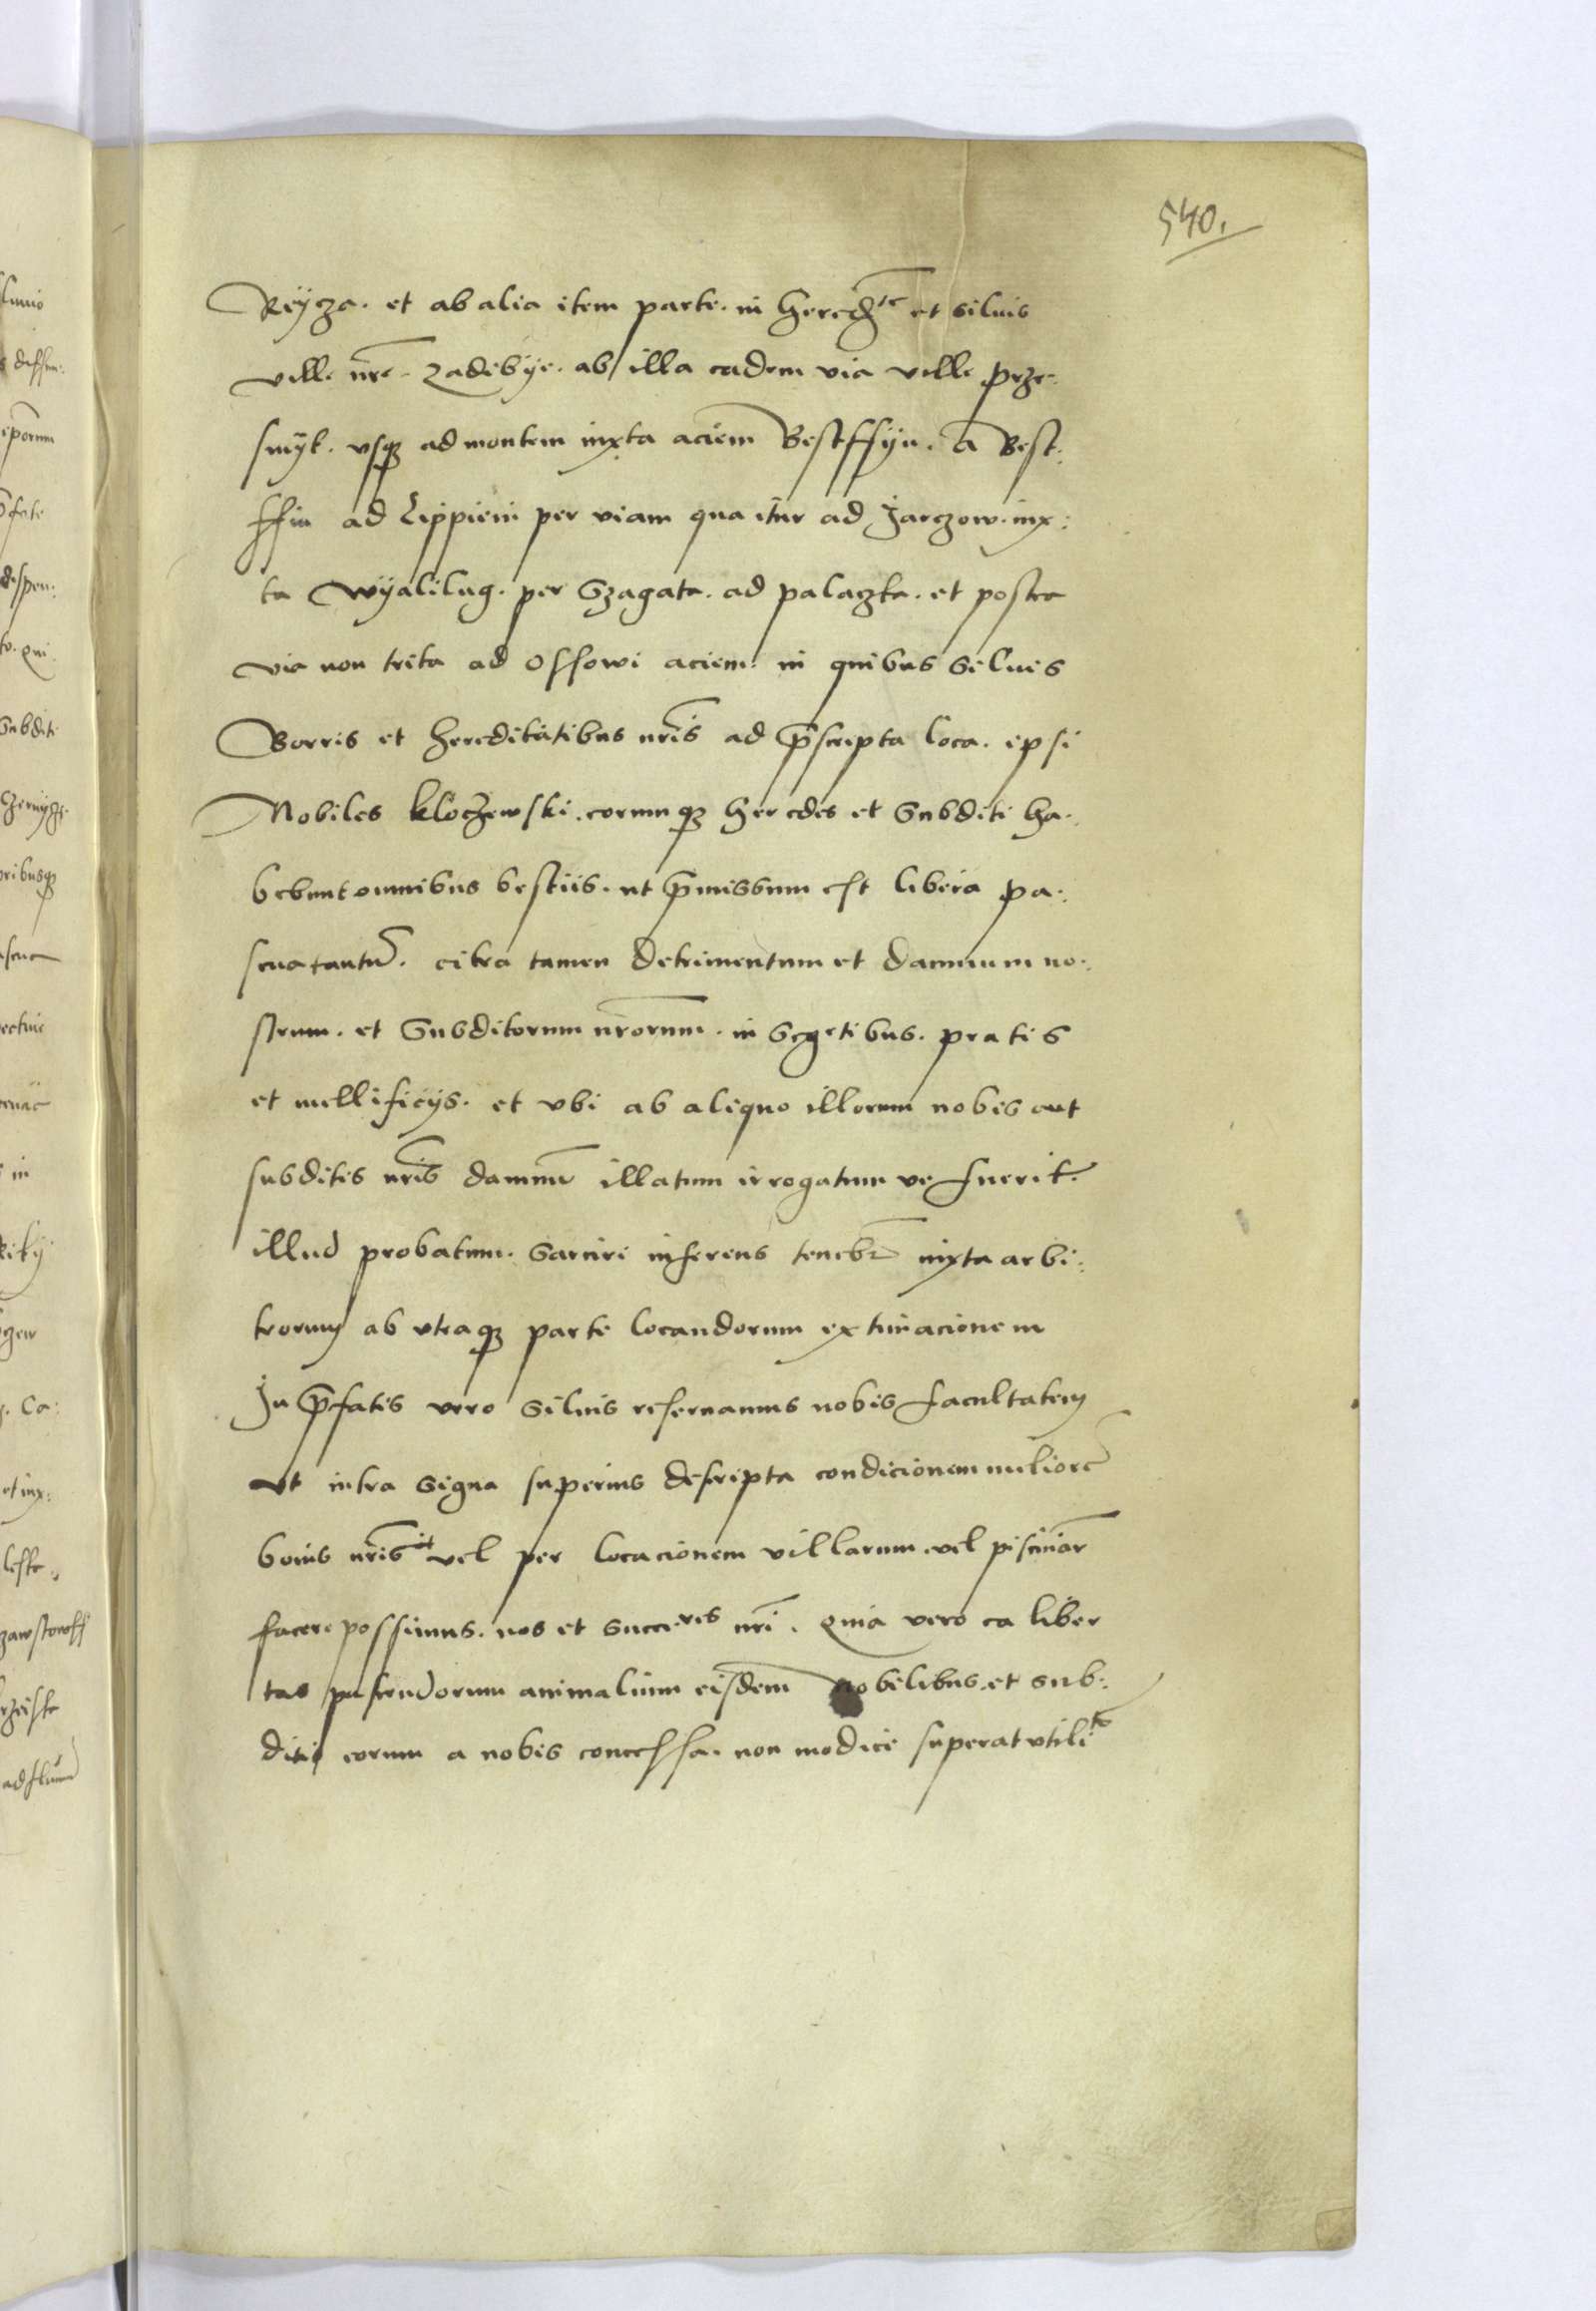 540.
Reycza. et ab alia item parte. in heredte et siluis
ville nre. Zadebye. ab illa eadem via ville prze:
smyk. vsqз ad montem iuxta aciem Bestssyn. a Best:
ssin ad Lippieni per viam qua itur ad Jarczow. iux:
ta Wyalilug. per Szagata. ad palaczka. et postea
via non trita ad Ossowi aciem. in quibus siluis
Borris et hereditatibus nris ad pscripta loca. ipsi
Nobiles kloczewski. eorumqз heredes et Subditi ha:
bebunt omnibus bestiis. ut pmissum est libera pa:
scua tantu. citra tamen detrimentum et damnum no:
strum. et Subditorum nrorum. in Segetibus. pratis
et mellificijs. et vbi ab aliquo illorum nobis aut
subditis nris damnu illatum irrogatum ve fuerit.
illud probatum. sarciri inferens tenebr iuxta arbi:
trorum ab vtraqз parte locandorum extimacionem
In pfatis vero siluis reseruamus nobis facultatem
vt intra signa superius descripta condicionem meliore
bonis nris vel per locacionem villarum vel piscinar
facere possimus. nos et succres nri. Quia vero ea liber
tas pascendorum animalium eisdem nobilibus. et sub:
ditis eorum a nobis concessa. non modice superat vtilite